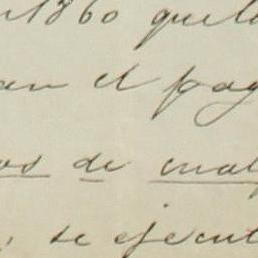 1860 que
el pag
os de cual
se ejecut